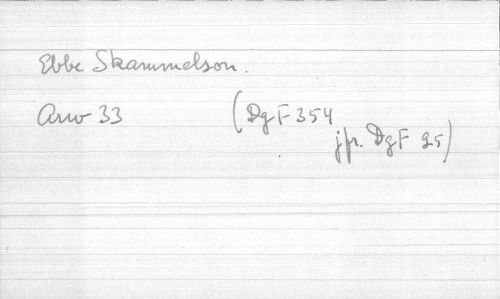 Ebbe Skammelson.
Arw 33 (DgF 354
jfr. DgF 95)